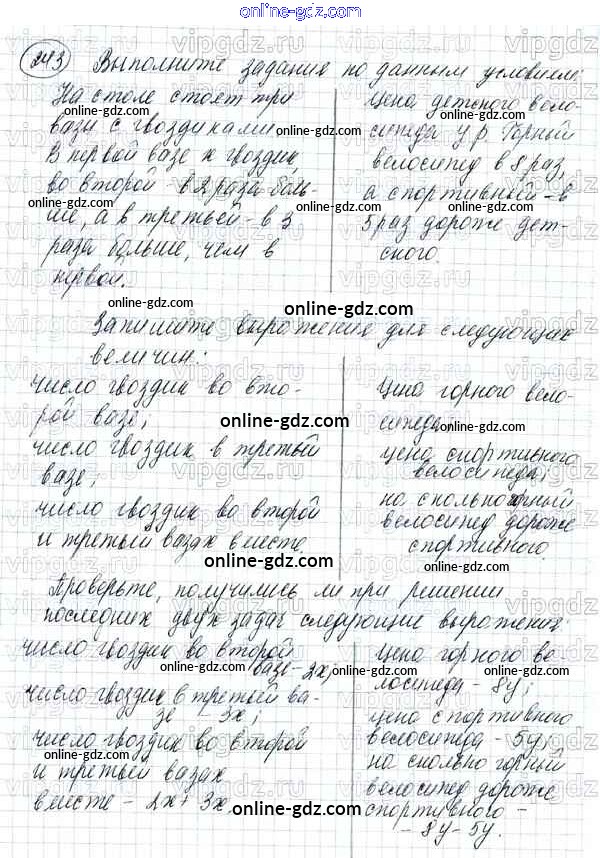 243 Выполните задания по данным условием:
На столе стоят три
вазы с гвоздиками
В первой вазе x гвоздик,
во второй - в 2 раза боль-
ше, а в третьей - в 3
раза больше, чем в
первой.
Цена детского вело-
сипеда y р. Горный
велосипед в 8 раз,
а спортивный - в
5 раз дороже дет-
ского.
Запишите выражения для следующих
величин:
число гвоздик во вто-
рой вазе;
число гвоздик в третьей
вазе;
число гвоздик во второй
и третьей вазах вместе.
Цена горного вело-
сипеда;
цена спортивного
велосипеда;
на сколько горный
велосипед дороже
спортивного.
Проверьте, получились ли при решении
последних двух задач следующие выражения:
число гвоздик во второй
вазе - 2x;
число гвоздик в третьей ва-
зе - 3x;
число гвоздик во второй
и третьей вазах
вместе - 2x + 3x
Цена горного ве-
лосипеда - 8y;
цена спортивного
велосипеда - 5y;
на сколько горный
велосипед дороже
спортивного -
- 8y - 5y.
online-gdz.com
vipgdz.ru